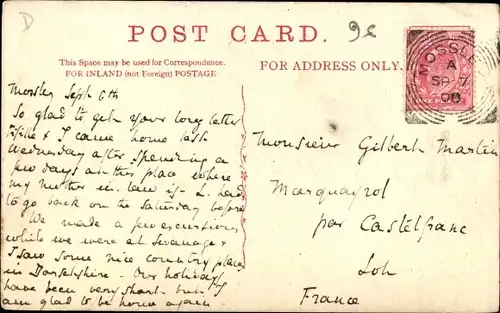 D
9c
POST CARD.
This Space may be used for Correspondence.
FOR INLAND (not Foreign) POSTAGE
FOR ADDRESS ONLY.
MOSSLEY
A
SP 7
08
Mossley Sept 6th
So glad to get your long letter
& I came home last
Wednesday after spending a
few days at this place where
my mother in law is. L. had
to go back on the Saturday before
We made a few excursions
while we were at &
I saw some nice country place
in . Our holidays
have been very short but I
am glad to be home again
Monsieur Gilbert Martin
Marquayrol
par Castelfranc
Lot
France